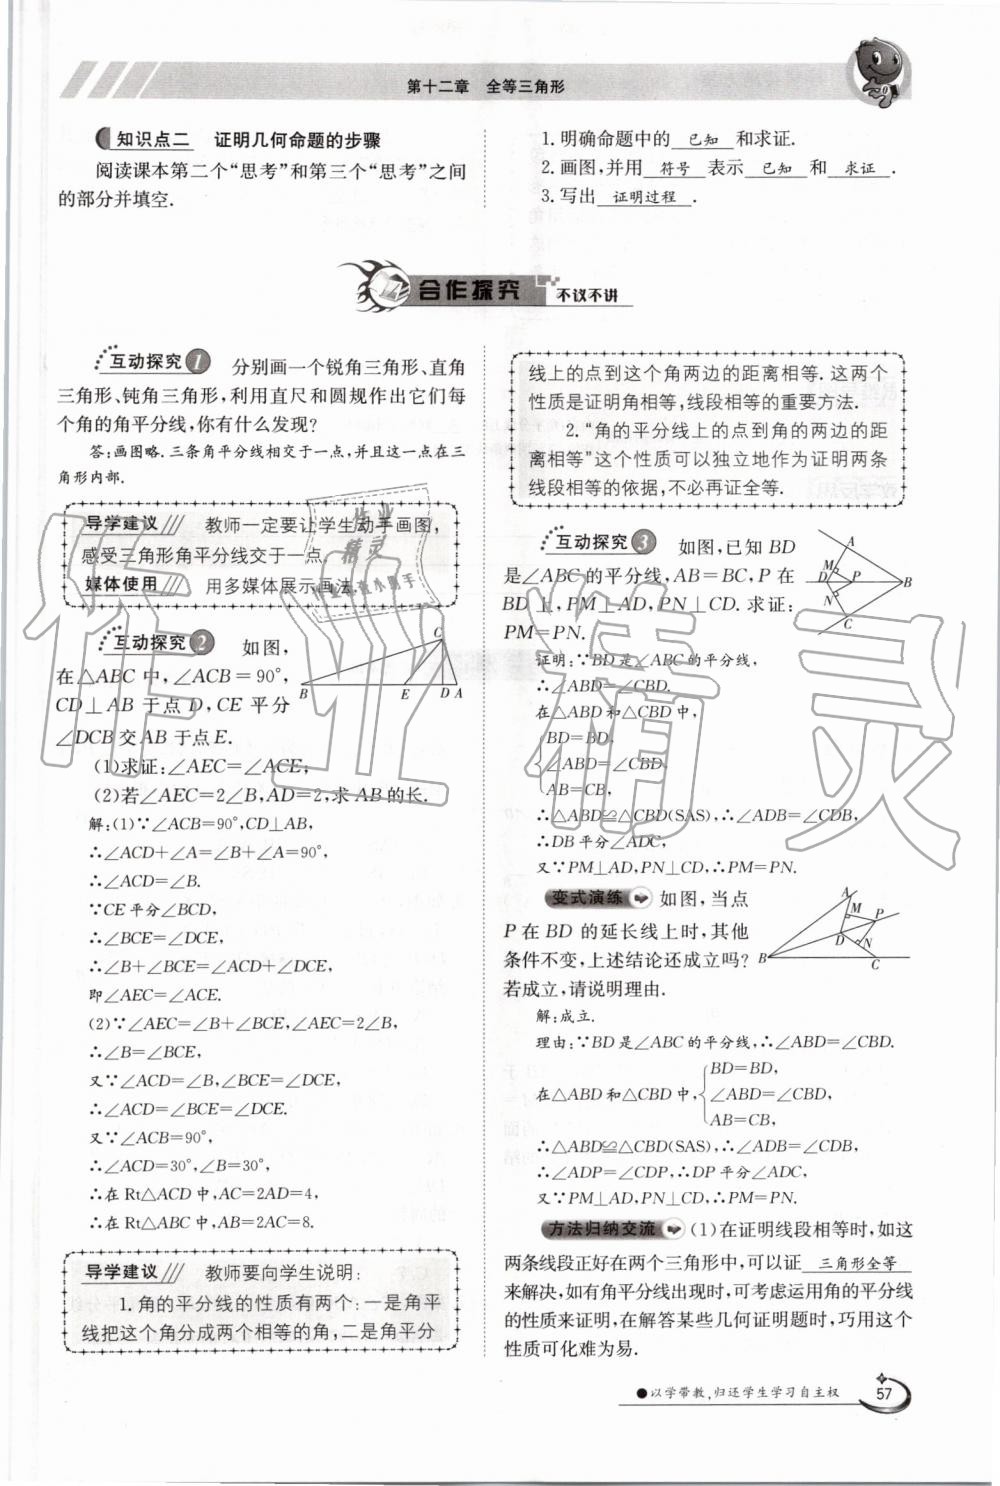 第十二章 全等三角形
知识点二 证明几何命题的步骤
阅读课本第二个“思考”和第三个“思考”之间
的部分并填空.
1.明确命题中的 已知 和求证.
2.画图,并用 符号 表示 已知 和 求证 .
3.写出 证明过程 .
合作探究 不议不讲
互动探究1 分别画一个锐角三角形、直角
三角形、钝角三角形,利用直尺和圆规作出它们每
个角的角平分线,你有什么发现?
答:画图略.三条角平分线相交于一点,并且这一点在三
角形内部.
导学建议 教师一定要让学生动手画图,
感受三角形角平分线交于一点.
媒体使用 用多媒体展示画法.
互动探究2 如图,
在△ABC中,∠ACB=90°,
CD⊥AB于点D,CE平分
∠DCB交AB于点E.
C
B E D A
(1)求证:∠AEC=∠ACE;
(2)若∠AEC=2∠B,AD=2,求AB的长.
解:(1)∵∠ACB=90°,CD⊥AB,
∴∠ACD+∠A=∠B+∠A=90°,
∴∠ACD=∠B.
∵CE平分∠BCD,
∴∠BCE=∠DCE,
∴∠B+∠BCE=∠ACD+∠DCE,
即∠AEC=∠ACE.
(2)∵∠AEC=∠B+∠BCE,∠AEC=2∠B,
∴∠B=∠BCE,
又∵∠ACD=∠B,∠BCE=∠DCE,
∴∠ACD=∠BCE=∠DCE.
又∵∠ACB=90°,
∴∠ACD=30°,∠B=30°,
∴在Rt△ACD中,AC=2AD=4,
∴在Rt△ABC中,AB=2AC=8.
导学建议 教师要向学生说明:
1.角的平分线的性质有两个:一是角平
线把这个角分成两个相等的角,二是角平分
线上的点到这个角两边的距离相等.这两个
性质是证明角相等,线段相等的重要方法.
2.“角的平分线上的点到角的两边的距
离相等”这个性质可以独立地作为证明两条
线段相等的依据,不必再证全等.
互动探究3 如图,已知BD
是∠ABC的平分线,AB=BC,P在
BD上,PM⊥AD,PN⊥CD.求证:
PM=PN.
A
M
D P B
N
C
证明:∵BD是∠ABC的平分线,
∴∠ABD=∠CBD.
在△ABD和△CBD中,
BD=BD,
∠ABD=∠CBD,
AB=CB,
∴△ABD≌△CBD(SAS),∴∠ADB=∠CDB,
∴DB平分∠ADC,
又∵PM⊥AD,PN⊥CD,∴PM=PN.
变式演练 如图,当点
P在BD的延长线上时,其他
条件不变,上述结论还成立吗?
若成立,请说明理由.
A
M P
D N
B C
解:成立.
理由:∵BD是∠ABC的平分线,∴∠ABD=∠CBD.
BD=BD,
在△ABD和△CBD中,∠ABD=∠CBD,
AB=CB,
∴△ABD≌△CBD(SAS),∴∠ADB=∠CDB,
∴∠ADP=∠CDP,∴DP平分∠ADC,
又∵PM⊥AD,PN⊥CD,∴PM=PN.
方法归纳交流 (1)在证明线段相等时,如这
两条线段正好在两个三角形中,可以证 三角形全等
来解决,如有角平分线出现时,可考虑运用角的平分线
的性质来证明,在解答某些几何证明题时,巧用这个
性质可化难为易.
●以学带教,归还学生学习自主权
57
作业精灵